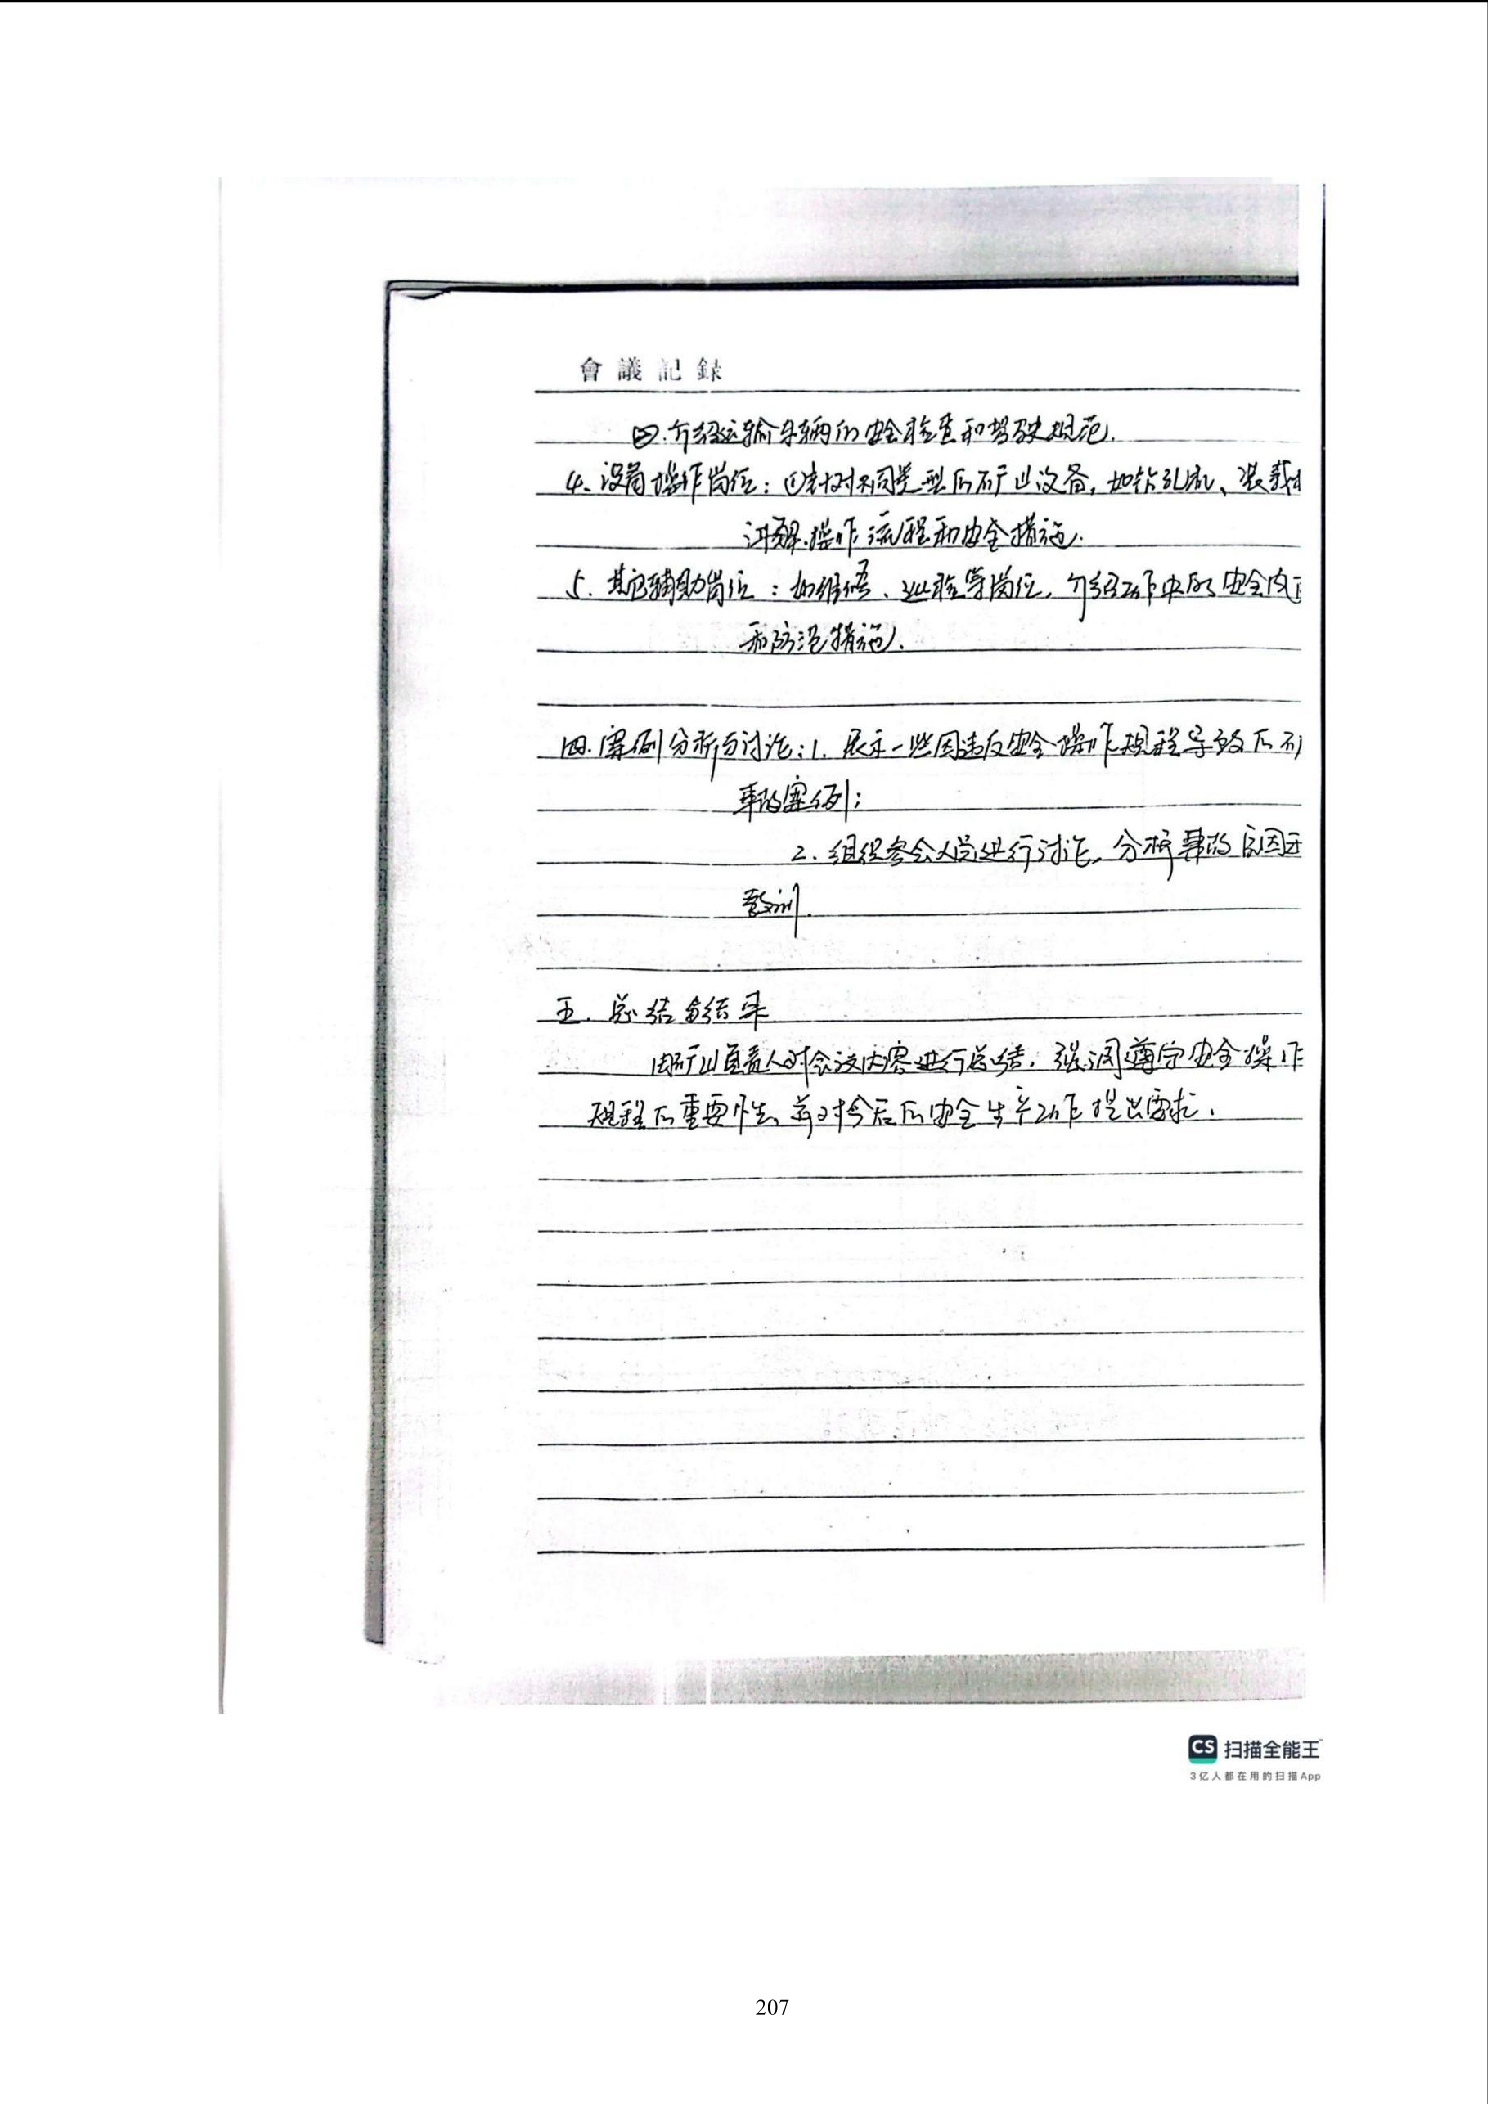 會議記録
四.介绍运输车辆的安全检查和驾驶规范.
4、设备操作岗位：①针对不同类型的矿山设备，如钻孔机、装载
讲解操作流程和安全措施.
5.其它辅助岗位：如维修、巡检等岗位，介绍工作中的安全
和防范措施.
四.案例分析与讨论：1.展示一些因违反安全操作规程导致的
事故案例；
2.组织参会人员进行讨论，分析事故原因
教训.
五.总结与结束
由矿山负责人对会议内容进行总结，强调遵守安全操作
规程的重要性，并对今后的安全生产工作提出要求.
CS 扫描全能王
3亿人都在用的扫描App
207